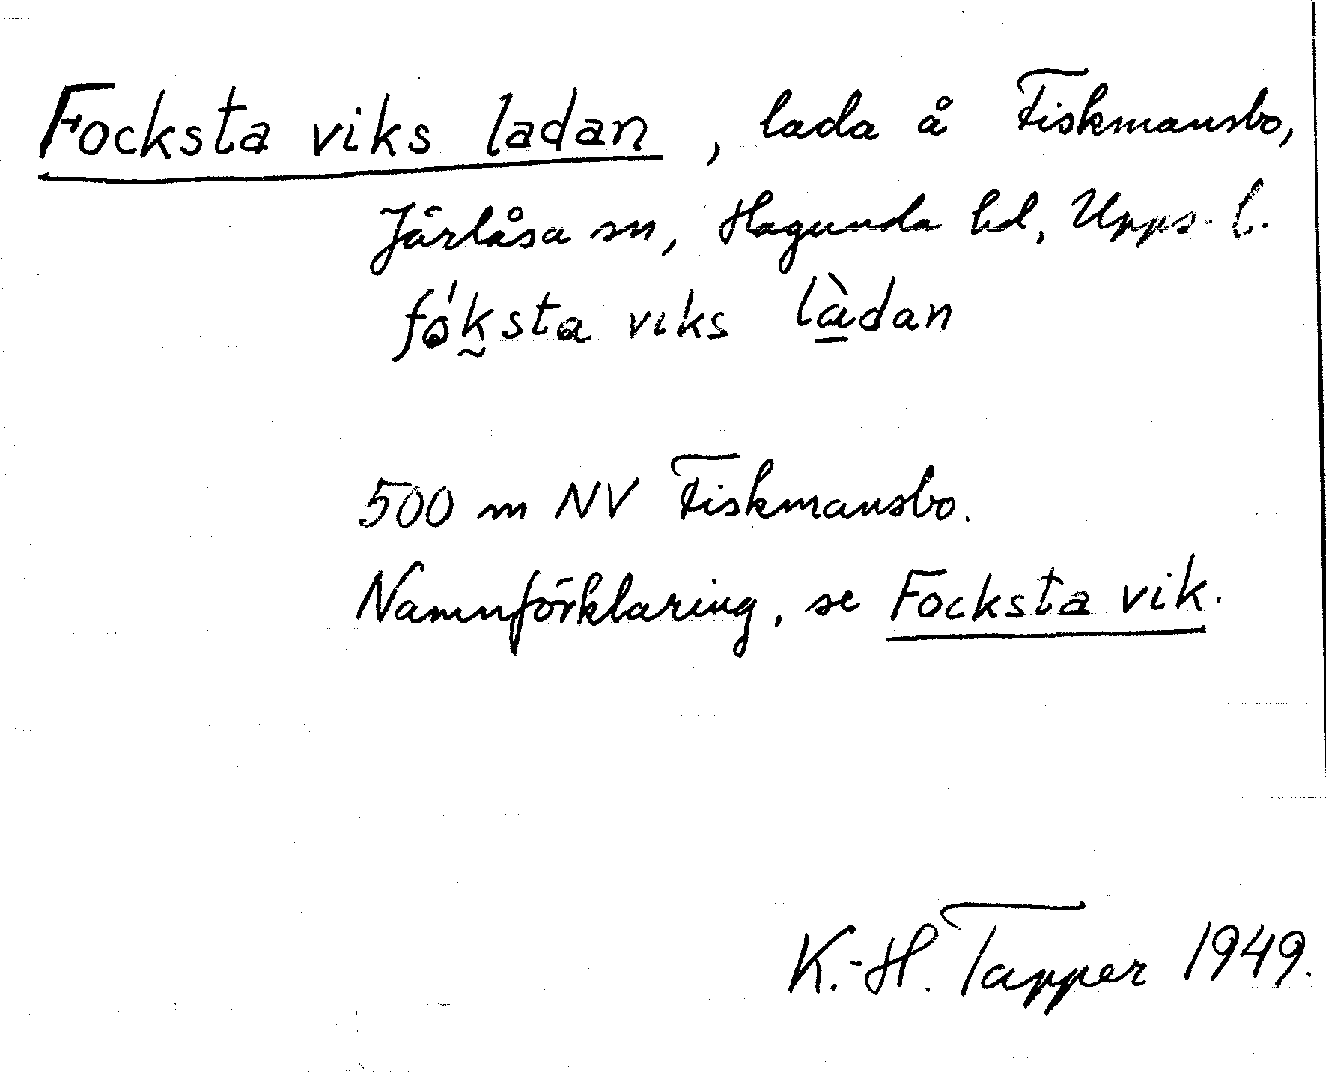 Focksta viks ladan, lada å Fiskmansbo,
Järlåsa sn, Hagunda hd, Upps. l.
fó̥k̰sta viks là̱dan
500 m NV Fiskmansbo.
Namnförklaring, se Focksta vik.
K.-H. Tapper 1949.